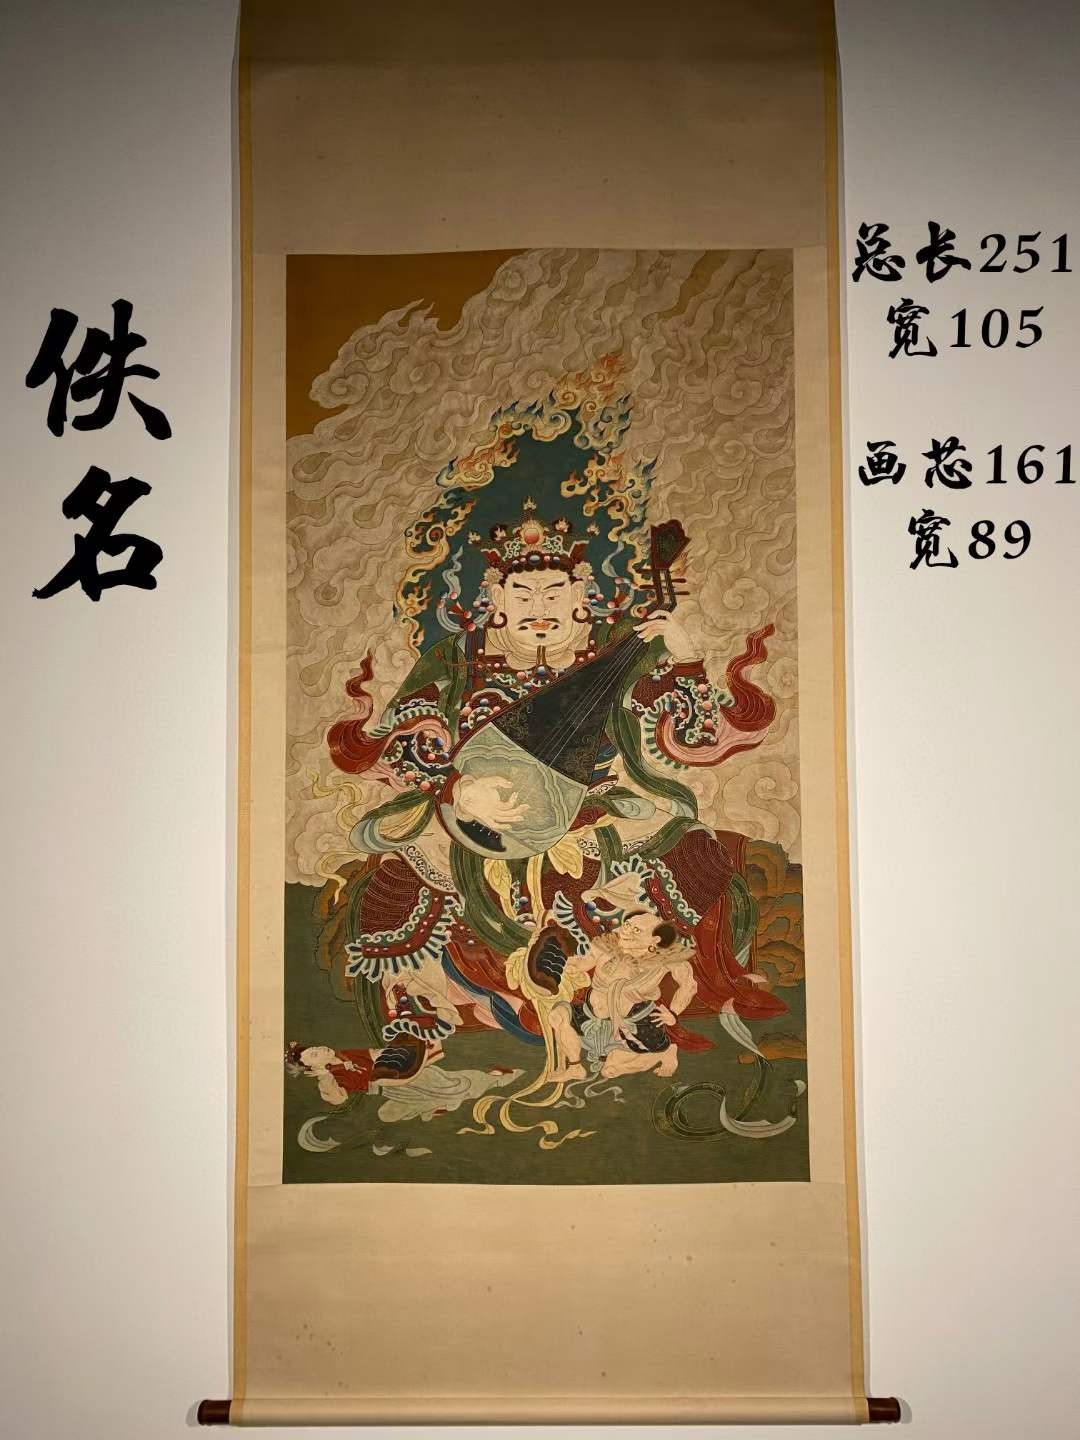 佚名
总长251
宽105
画芯161
宽89